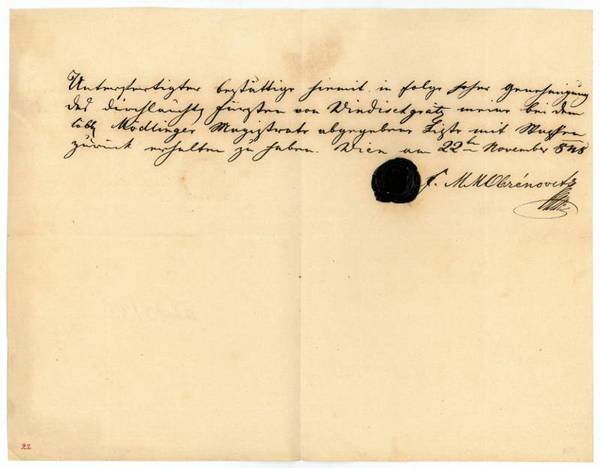 Unterfertigter bestättige hiemit in folge hoher Genehmigung
des durchlaucht Fürsten von Windischgrätz meine bei dem
löbl Mödlinger Magistrate abgegebene Kiste mit Waffen
zurück erhalten zu haben. Wien am 22ten November 848
f. M. M Obrénovitz
22